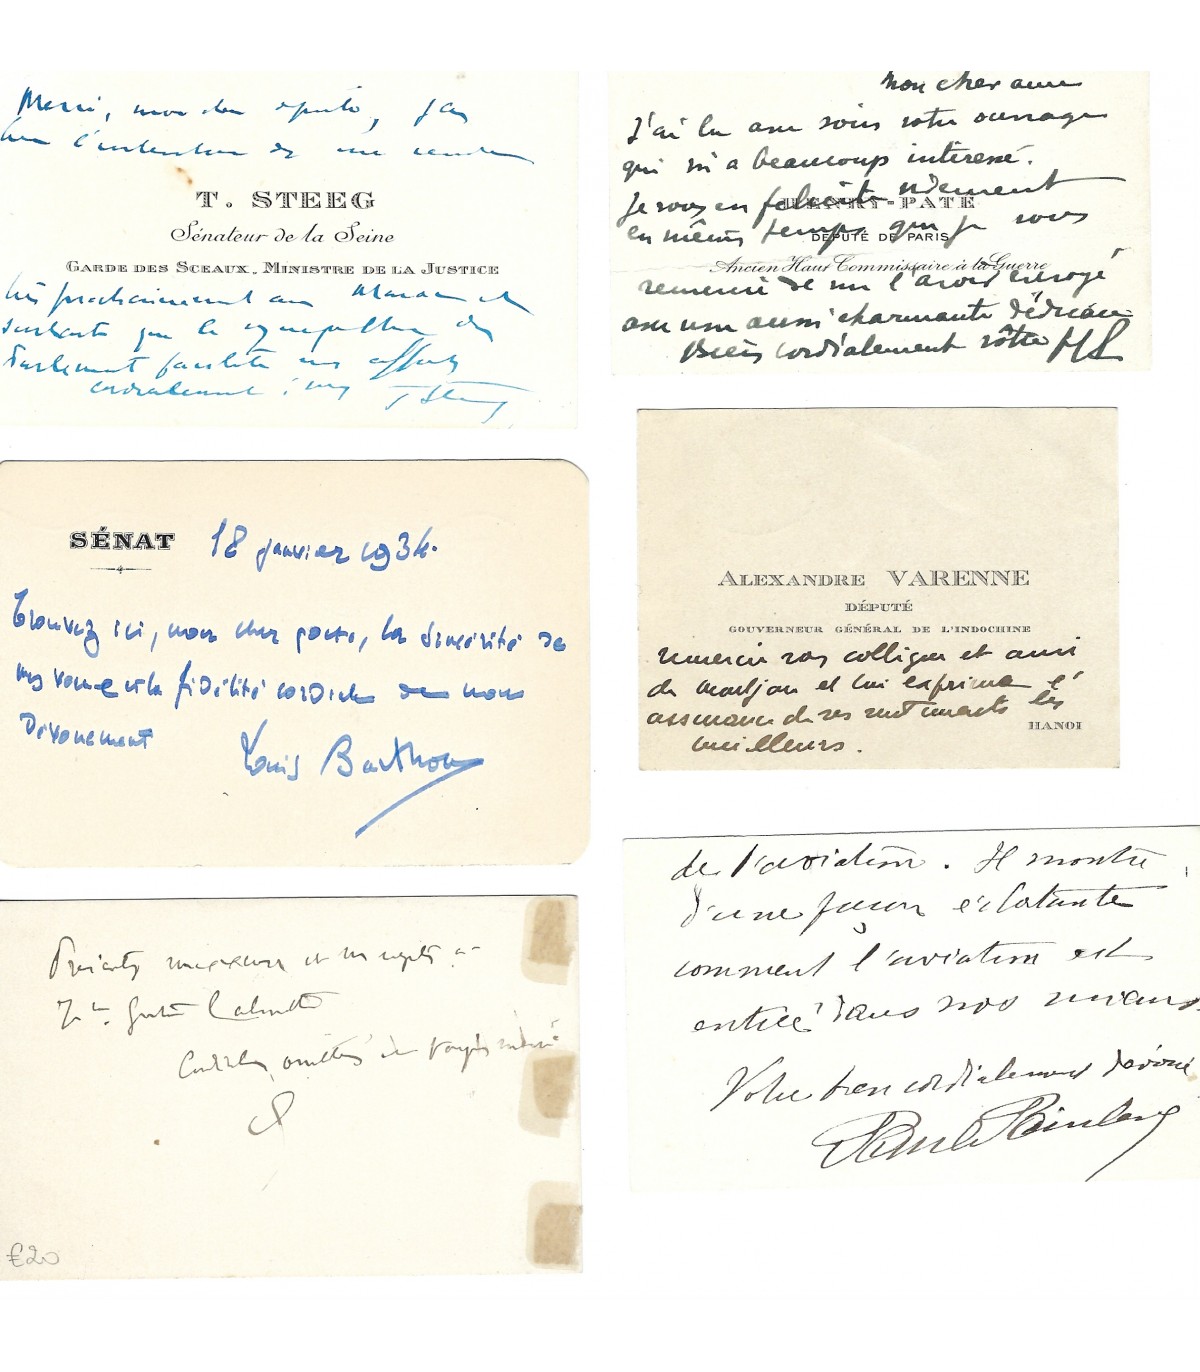 Merci, mon cher député, j'ai
l'intention de me rendre
T. STEEG
Sénateur de la Seine
GARDE DES SCEAUX, MINISTRE DE LA JUSTICE
très prochainement au Maroc et
souhaite que la sympathie du
Parlement facilite mes efforts
cordialement TSteeg
Mon cher ami
J'ai lu avec soin votre ouvrage
qui m'a beaucoup intéressé.
Je vous en félicite vivement
HENRY-PATÉ
en même temps que je vous
DÉPUTÉ DE PARIS
Ancien Haut Commissaire à la Guerre
remercie de me l'avoir envoyé
avec une aussi charmante dédicace
Bien cordialement vôtre HP
SÉNAT
18 janvier 1934.
Trouvez ici, mon cher, la sincérité de
mes vœux et la fidélité cordiale de mon
Dévouement
Louis Barthou
ALEXANDRE VARENNE
DÉPUTÉ
GOUVERNEUR GÉNÉRAL DE L'INDOCHINE
remercie son collègue et ami
de Monjou et lui exprime l'
assurance de ses sentiments les
HANOI
meilleurs.
et mes respects à
Gaston Calmette
£20
de l'aviation. Il montre
d'une façon éclatante
comment l'aviation est
entrée dans nos mœurs.
Votre bien cordialement dévoué
Paul Painlevé